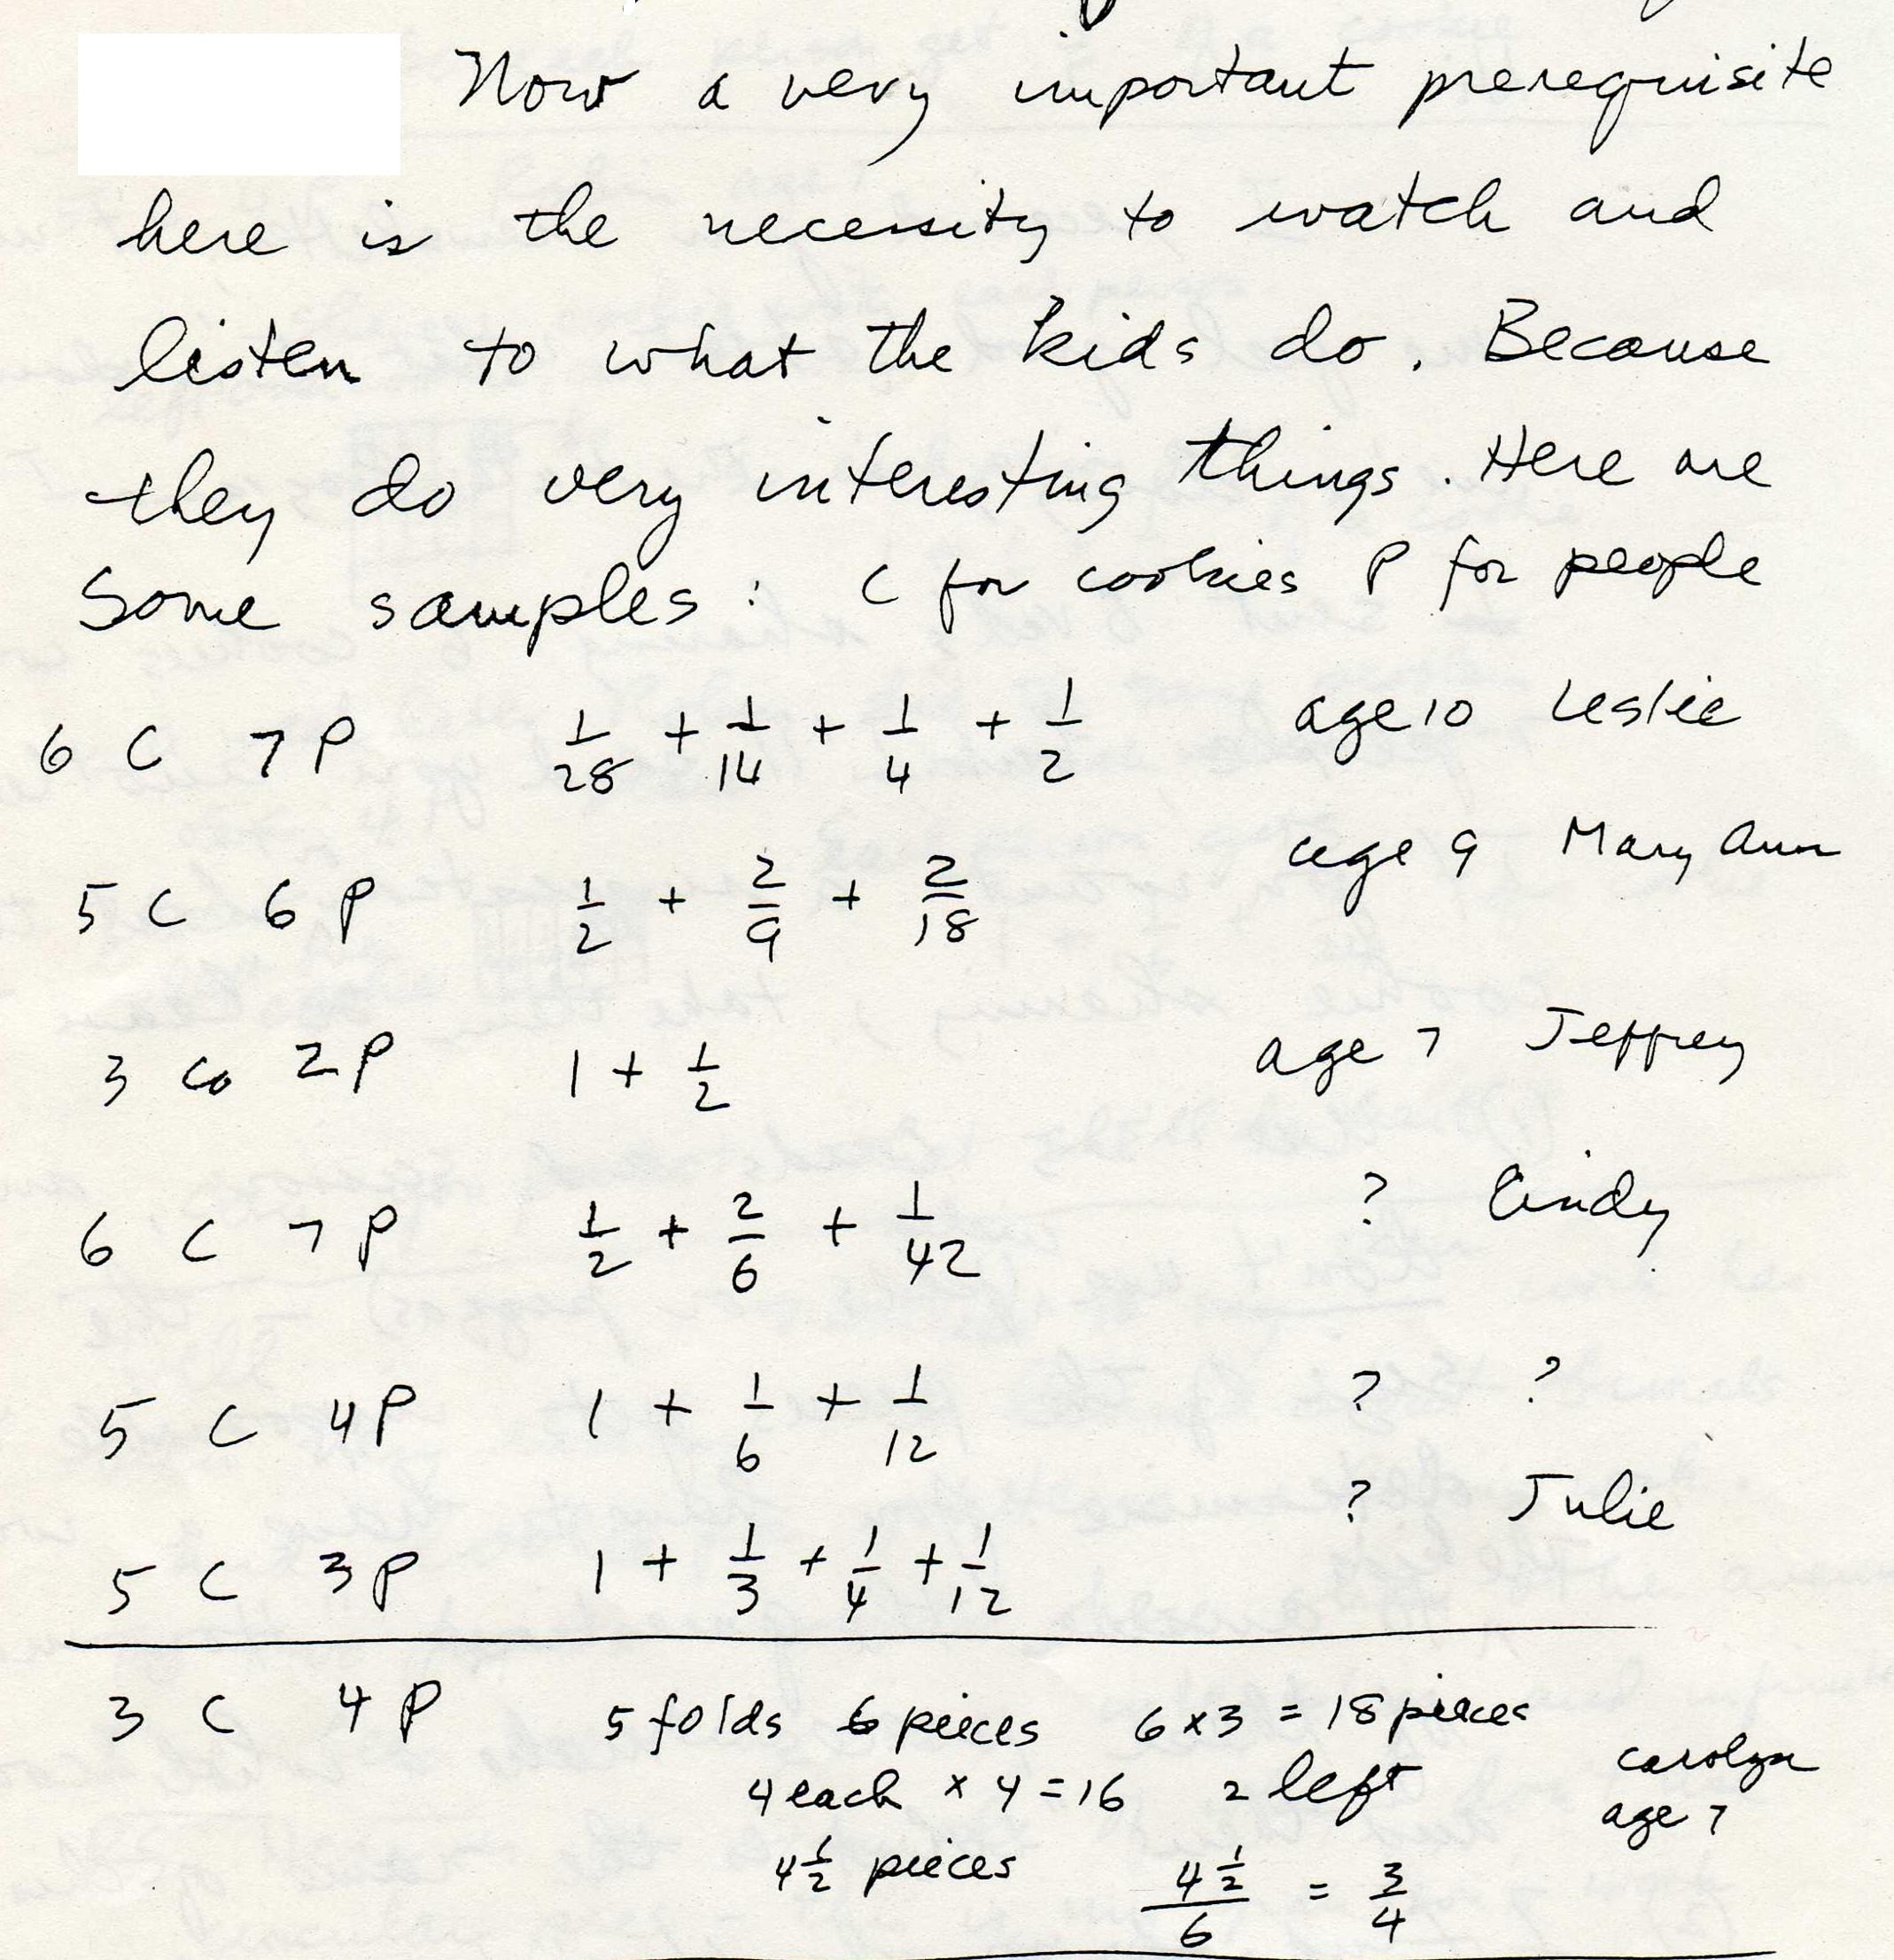 Now a very important prerequisite
here is the necessity to watch and
listen to what the kids do. Because
they do very interesting things. Here are
Some samples: C for cookies P for people
6 C 7 P 1/28 + 1/14 + 1/4 + 1/2 age 10 Leslie
5 C 6 P 1/2 + 2/9 + 2/18 age 9 Mary Ann
3 Co 2 P 1 + 1/2 age 7 Jeffrey
6 C 7 P 1/2 + 2/6 + 1/42 ? Cindy
5 C 4 P 1 + 1/6 + 1/12 ? ?
5 C 3 P 1 + 1/3 + 1/4 + 1/12 ? Julie
3 C 4 P 5 folds 6 pieces 6 x 3 = 18 pieces
4 each x 4 = 16 2 left Carolyn
age 7
4 1/2 pieces 4 1/2 / 6 = 3/4